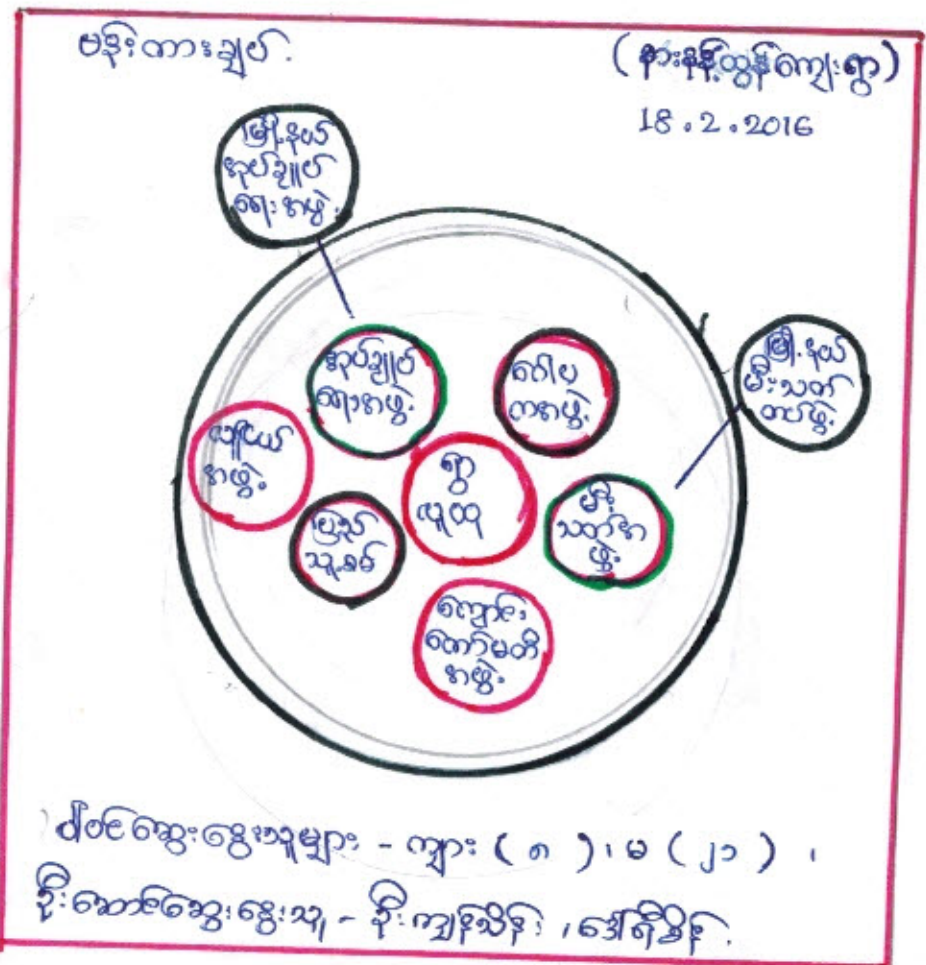 ဗန်းကားချပ်.
(နားနန့်ထွန်ကျေးရွာ)
18.2.2016
မြို့နယ်
အုပ်ချုပ်
ရေးအဖွဲ့
အုပ်ချုပ်
ရေးအဖွဲ့
ဂေါပ
ကအဖွဲ့
မြို့နယ်
မီးသတ်
တပ်ဖွဲ့
လူငယ်
အဖွဲ့
ရွာ
လူထု
မီး
သတ်အ
ဖွဲ့
ပြည်
သူ့စစ်
ကျောင်း
ကော်မတီ
အဖွဲ့
ပါဝင်ဆွေးနွေးသူများ - ကျား ( ၈ ) ၊ မ ( ၂၁ ) ၊
ဦးဆောင်ဆွေးနွေးသူ - ဦးကျန်သိန်း ၊